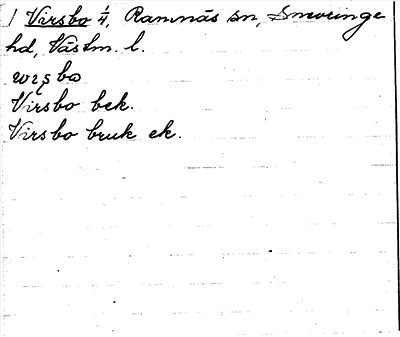 1 Virsbo 1/4, Ramnäs sn, Snevringe
hd, Västm. l.
Virsbo bek.
Virsbo bruk ek.